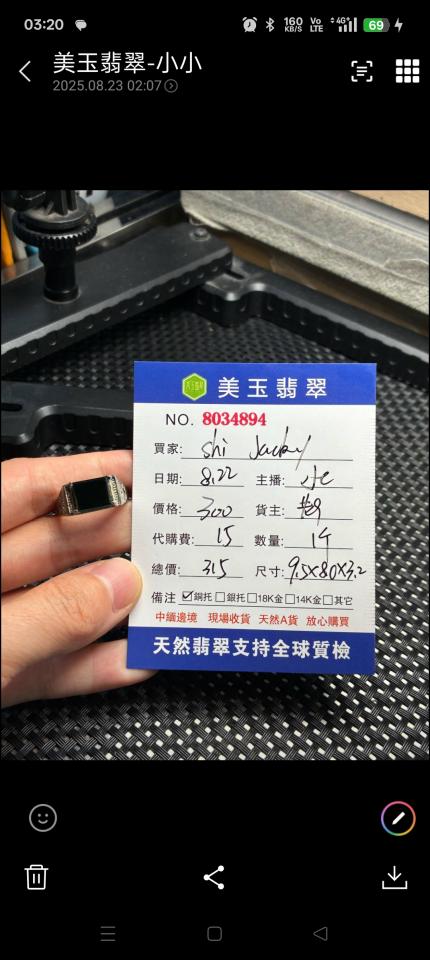 03:20
160 KB/S
Vo LTE
4G+
69
美玉翡翠-小小
2025.08.23 02:07
美玉翡翠
NO. 8034894
買家: Shi Jacky
日期: 8.22 主播: 小七
價格: 300 貨主:
代購費: 15 數量: 1件
總價: 315 尺寸: 9.5X8.0X3.2
備注 ☑銅托 □銀托 □18K金 □14K金 □其它
中緬邊境 現場收貨 天然A貨 放心購買
天然翡翠支持全球質檢